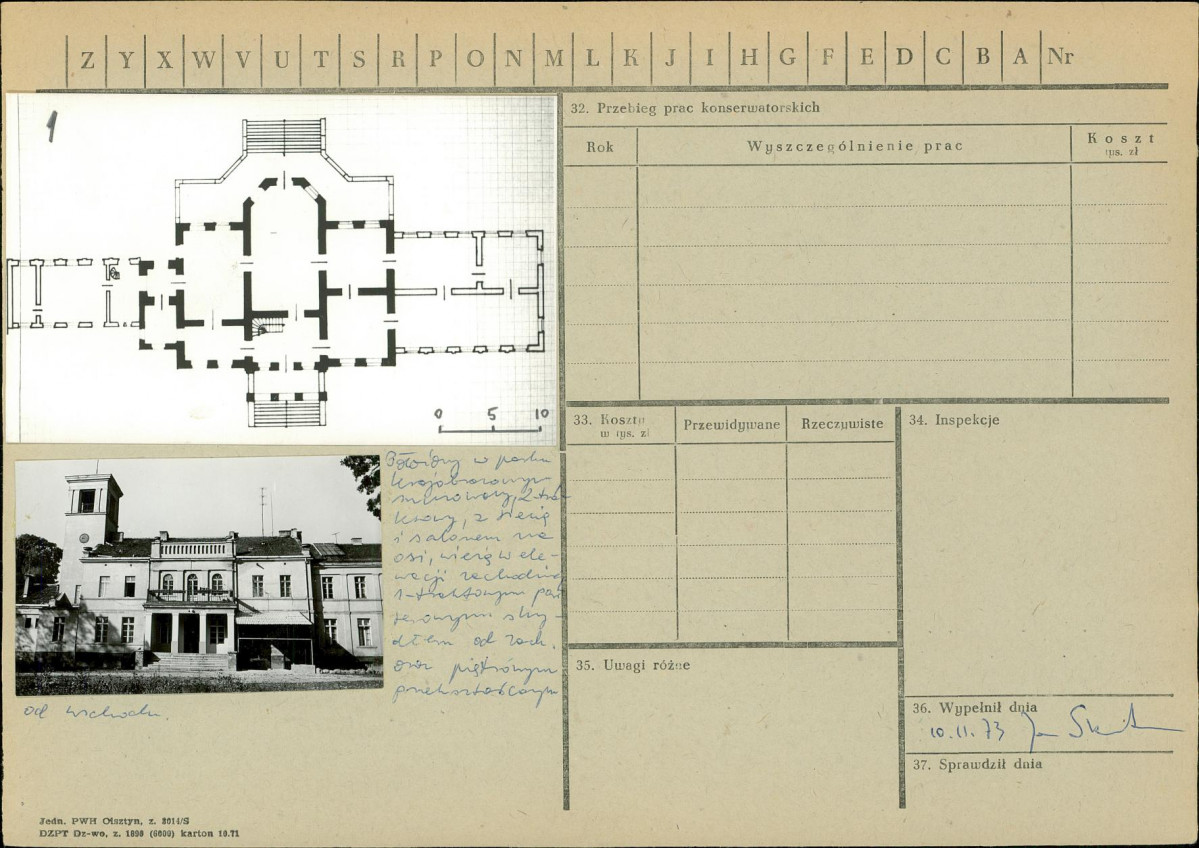 Z Y X W V U T S R P O N M L K J I H G F E D C B A Nr
1
0 5 10
32. Przebieg prac konserwatorskich
Rok Wyszczególnienie prac Koszt
tys. zł
33. Koszty
w tys. zł
Przewidywane Rzeczywiste
34. Inspekcje
w parku
krajobrazowym
murowany, 2-tra-
ktowy, z sienią
i salonem na
osi, wieżą w ele-
wacji zachodniej
1-traktowym par
terowym skrzy-
dłem od zach.
oraz piętrowym
od wschodu.
35. Uwagi różne
36. Wypełnił dnia
10.11.73 Jan
37. Sprawdził dnia
Jedn. PWH Olsztyn, z. 3014/S
DZPT Dz-wo, z. 1898 (6000) karton 10.71